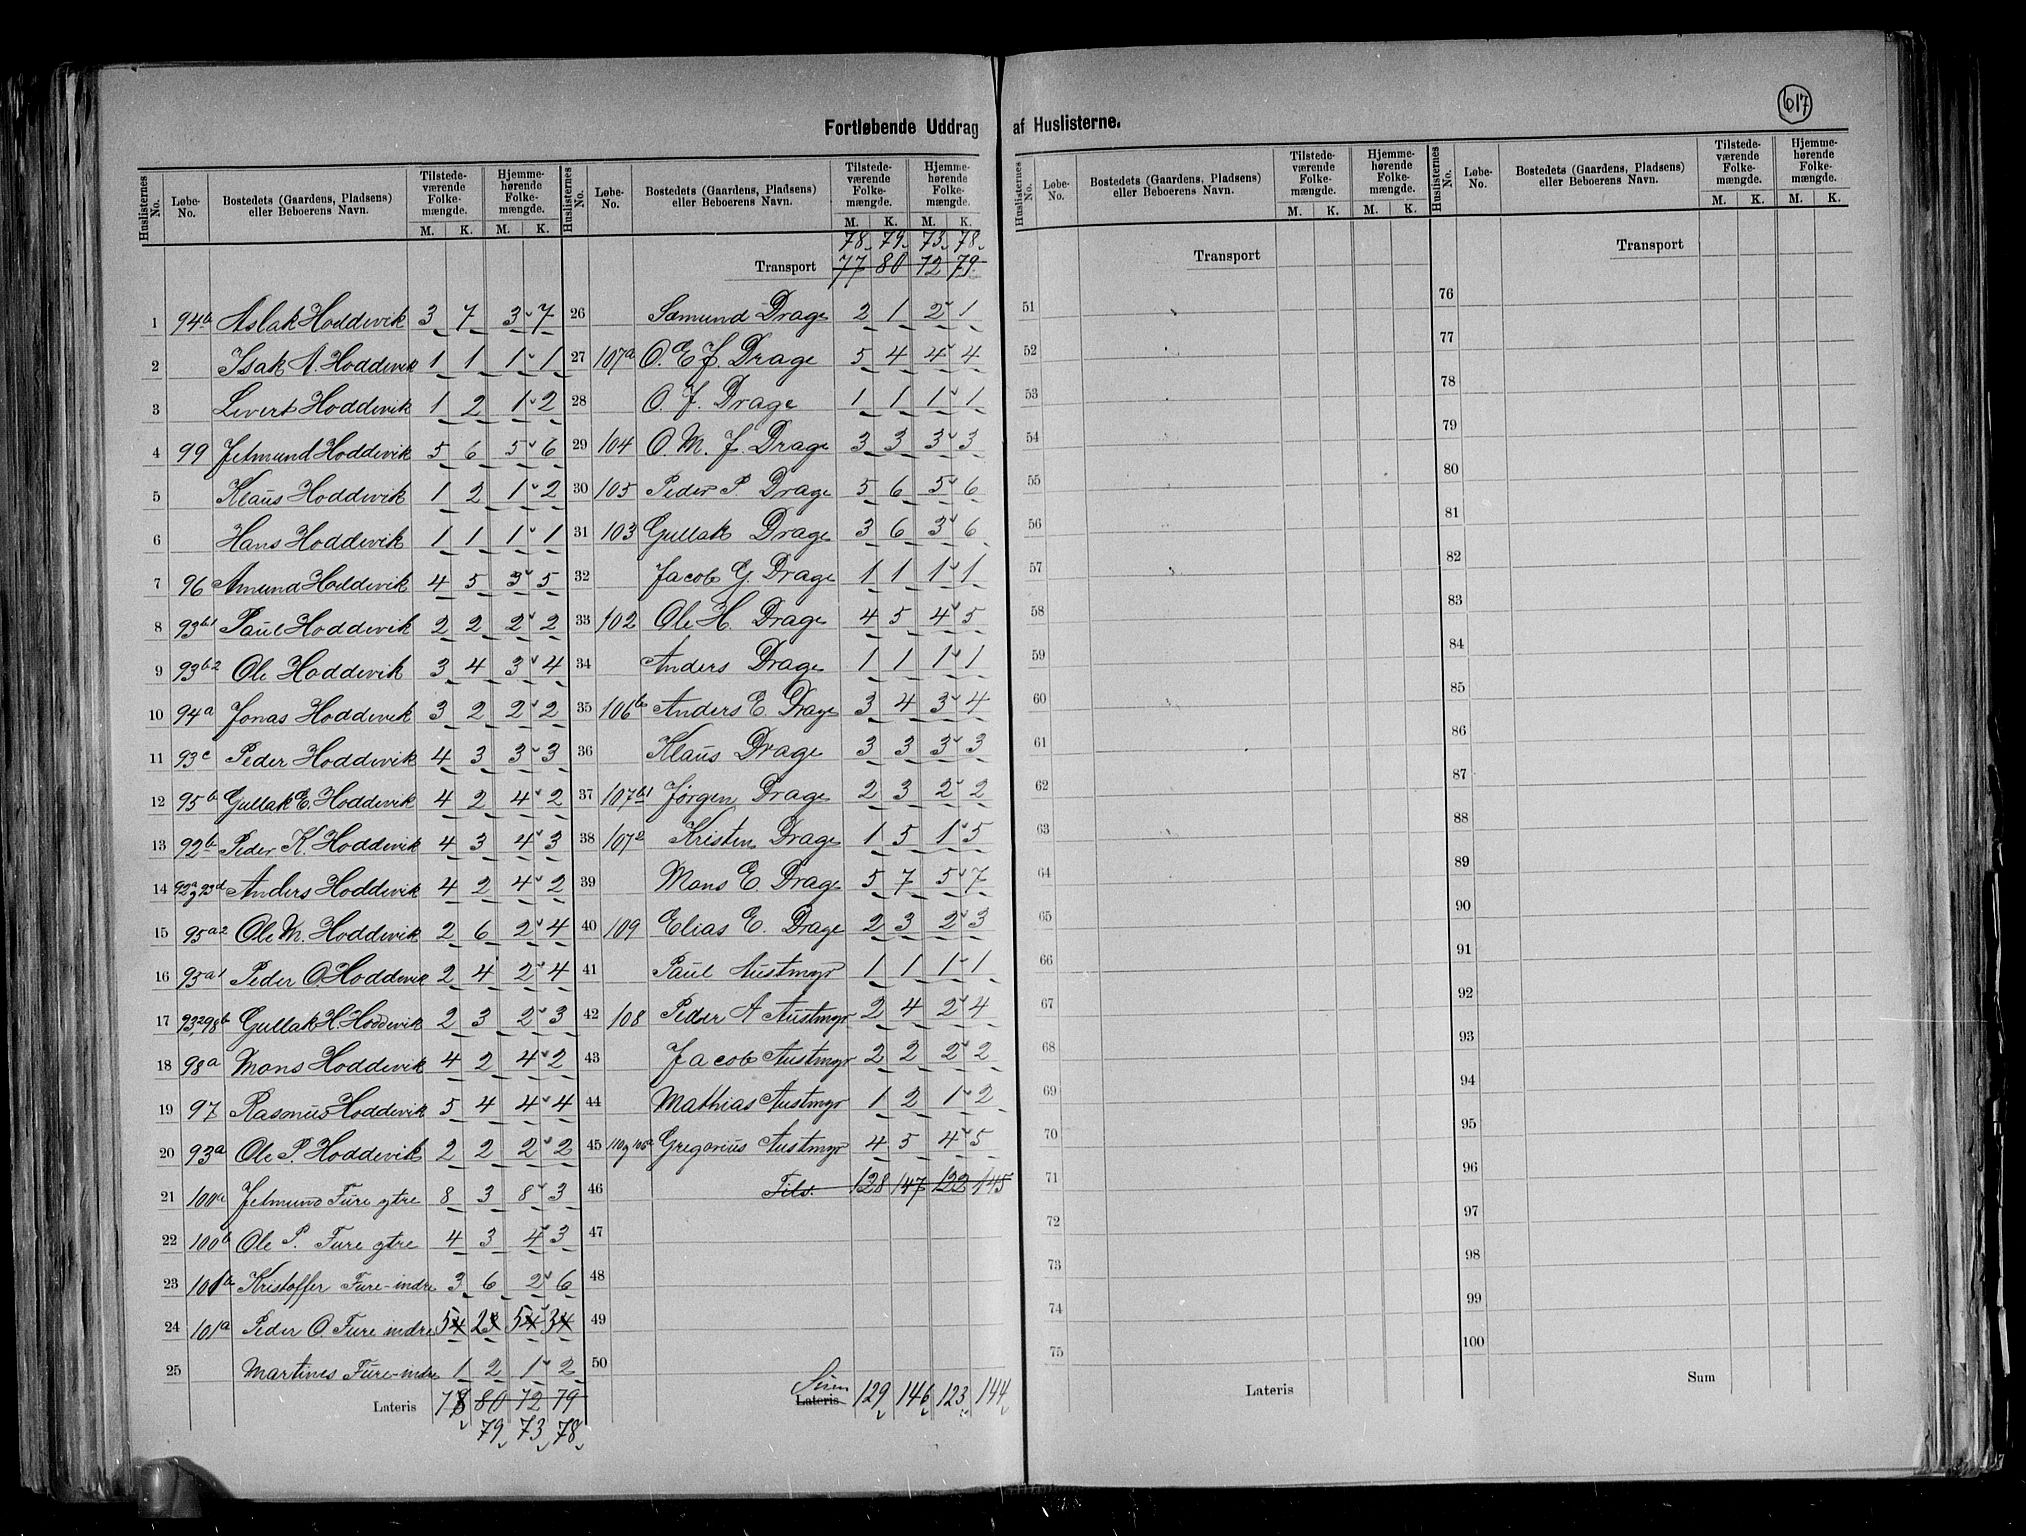 617
Fortløbende Uddrag af Huslisterne.
Huslisternes No. Løbe-No. Bostedets (Gaardens, Pladsens) eller Beboerens Navn. Tilstede-værende Folke-mængde. M. K. Hjemme-hørende Folke-mængde. M. K.
1 94b Aslak Hoddevik 3 7 3 7
2 Isak A. Hoddevik 1 1 1 1
3 Sivert Hoddevik 1 2 1 2
4 99 Jetmund Hoddevik 5 6 5 6
5 Klaus Hoddevik 1 2 1 2
6 Hans Hoddevik 1 1 1 1
7 96 Amund Hoddevik 4 5 3 5
8 93b1 Paul Hoddevik 2 2 2 2
9 93b2 Ole Hoddevik 3 4 3 4
10 94a Jonas Hoddevik 3 2 2 2
11 93c Peder Hoddevik 4 3 3 3
12 95b Gullak E. Hoddevik 4 2 4 2
13 92b Peder K. Hoddevik 4 3 4 3
14 92a g 93d Anders Hoddevik 4 2 4 2
15 95a2 Ole M. Hoddevik 2 6 2 4
16 95a1 Peder O. Hoddevik 2 4 2 4
17 98b Gullak H. Hoddevik 2 3 2 3
18 98a Mons Hoddevik 4 2 4 2
19 97 Rasmus Hoddevik 5 4 4 4
20 93a Ole P. Hoddevik 2 2 2 2
21 100a Jetmund Fure ytre 8 3 8 3
22 100b Ole P. Fure ytre 4 3 4 3
23 101b Kristoffer Fure-indre 3 6 2 6
24 101a Peder O. Fure indre 5 4 2 3 5 4 3 4
25 Martines Fure-indre 1 2 1 2
Lateris 78 80 72 79
79 73 78
Huslisternes No. Løbe-No. Bostedets (Gaardens, Pladsens) eller Beboerens Navn. Tilstede-værende Folke-mængde. M. K. Hjemme-hørende Folke-mængde. M. K.
78 79 73 78
Transport 77 80 72 79
26 Samund Drage 2 1 2 1
27 107a O. E. J. Drage 5 4 4 4
28 O. J. Drage 1 1 1 1
29 104 O. M. J. Drage 3 3 3 3
30 105 Peder P. Drage 5 6 5 6
31 103 Gullak Drage 3 6 3 6
32 Jacob G. Drage 1 1 1 1
33 102 Ole H. Drage 4 5 4 5
34 Anders Drage 1 1 1 1
35 106b Anders E. Drage 3 4 3 4
36 Klaus Drage 3 3 3 3
37 107b1 Jørgen Drage 2 3 2 2
38 1072 Kristen Drage 1 5 1 5
39 Mons E. Drage 5 7 5 7
40 109 Elias E. Drage 2 3 2 3
41 Paul Austmyr 1 1 1 1
42 108 Peder A Austmyr 2 4 2 4
43 Jacob Austmyr 2 2 2 2
44 Mathias Austmyr 1 2 1 2
45 110 g 106a Gregorius Austmyr 4 5 4 5
46 Tils. 128 147 122 145
47
48
49
50
Sum
Lateris 129 146 123 144
Huslisternes No. Løbe-No. Bostedets (Gaardens, Pladsens) eller Beboerens Navn. Tilstede-værende Folke-mængde. M. K. Hjemme-hørende Folke-mængde. M. K.
Transport
51
52
53
54
55
56
57
58
59
60
61
62
63
64
65
66
67
68
69
70
71
72
73
74
75
Lateris
Huslisternes No. Løbe-No. Bostedets (Gaardens, Pladsens) eller Beboerens Navn. Tilstede-værende Folke-mængde. M. K. Hjemme-hørende Folke-mængde. M. K.
Transport
76
77
78
79
80
81
82
83
84
85
86
87
88
89
90
91
92
93
94
95
96
97
98
99
100
Sum